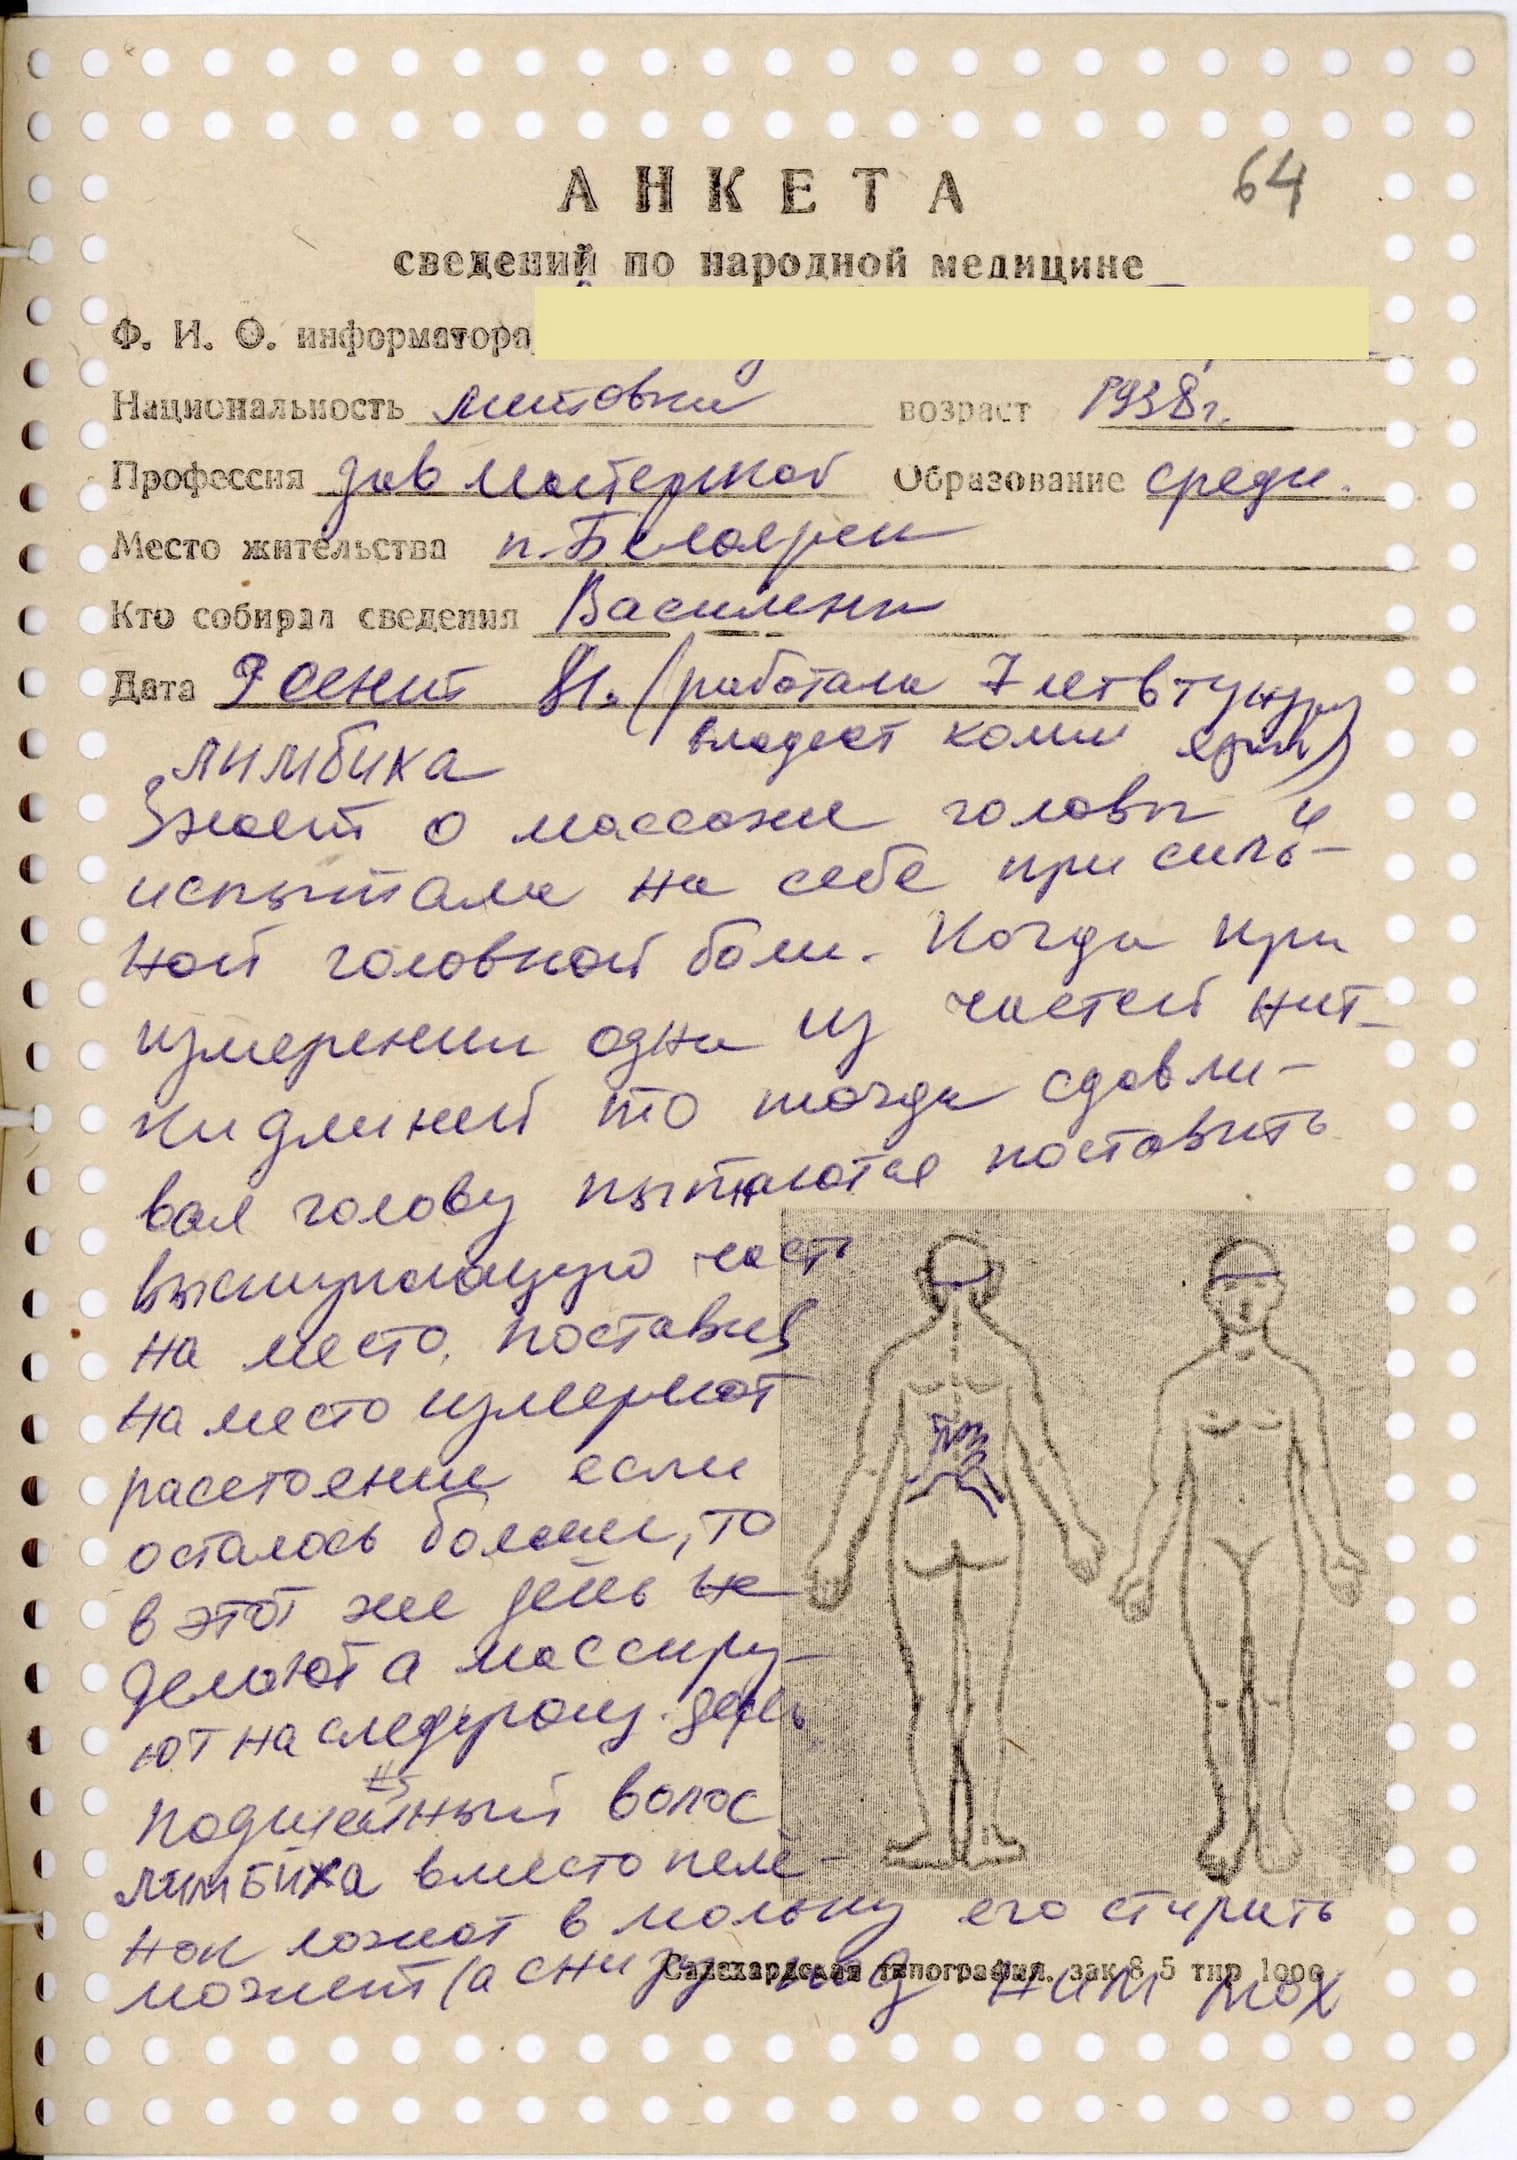 64
АНКЕТА
сведений по народной медицине
Ф. И. О. информатора
Национальность литовка возраст 1938г.
Профессия зав мастерской Образование средн.
Место жительства п. Белоярск
Кто собирал сведения Василенко
Дата 9 сент 81. (работала 7 лет в тундре
владеет коми языком)
лимбика
Знает о массаже головы и
испытала на себе при силь-
ной головной боли. Когда при
измерении одна из частей нит-
ки длиней то тогда сдавли-
вая голову пытаются поставить
выступающую часть
на место. поставив
на место измеряют
расстояние если
осталось больше, то
в этот же день не
делают а массиру-
ют на следующ. день
подшейный волос
лимбика вместо пелё-
нок ложат в люльку его стирать
может (а снизу под ним мох
Салехардская типография. зак 8 5 тир 1000